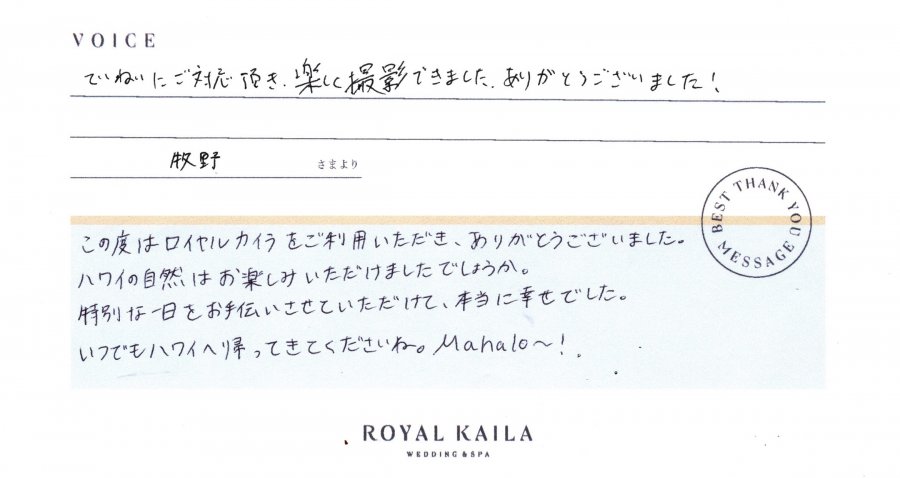 VOICE
ていねいにご対応頂き、楽しく撮影できました。ありがとうございました！
牧野 さまより
BEST THANK YOU MESSAGE
この度はロイヤルカイラをご利用いただき、ありがとうございました。
ハワイの自然はお楽しみいただけましたでしょうか。
特別な一日をお手伝いさせていただけて、本当に幸せでした。
いつでもハワイへ帰ってきてくださいね。Mahalo〜！
ROYAL KAILA
WEDDING & SPA